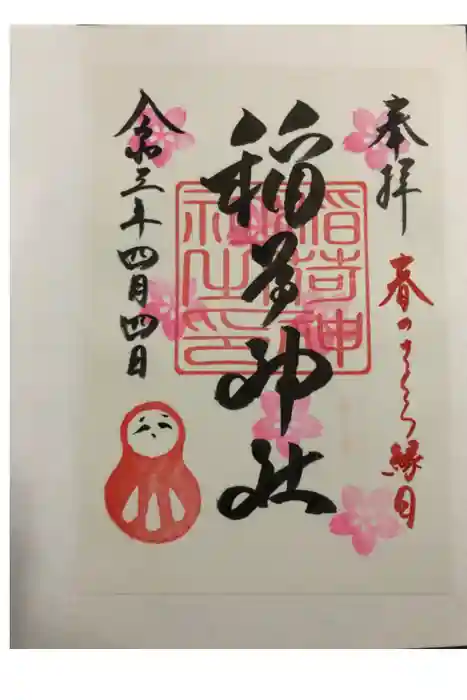 奉拝
春のさくら縁日
稲荷神社
稲荷神社之印
令和三年四月四日